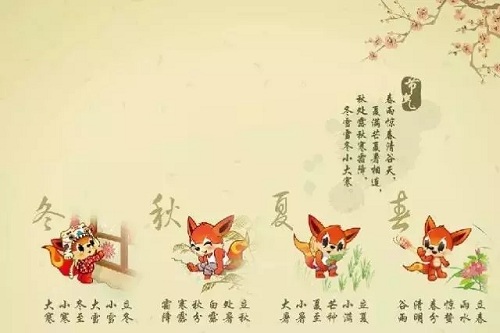 节气
春雨惊春清谷天,
夏满芒夏暑相连,
秋处露秋寒霜降,
冬雪雪冬小大寒
春
立春
雨水
惊蛰
春分
清明
谷雨
夏
立夏
小满
芒种
夏至
小暑
大暑
秋
立秋
处暑
白露
秋分
寒露
霜降
冬
立冬
小雪
大雪
冬至
小寒
大寒